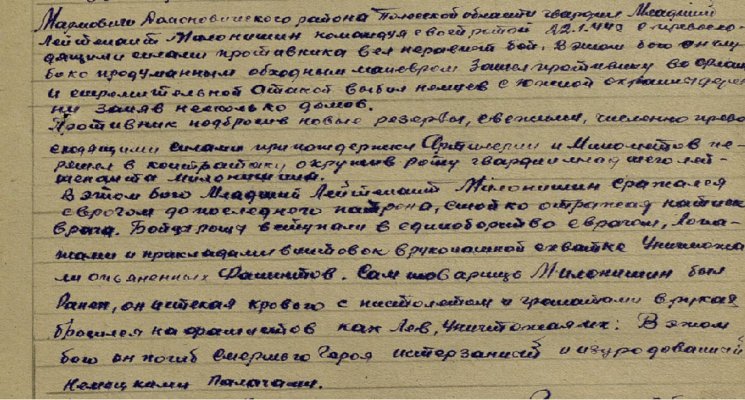 Марковичи Домановичского района Полесской области гвардии Младший
Лейтенант Милонишин командуя своей ротой 22.1.44г с превосхо-
дящими силами противника вел неравный бой. В этом бою он глу-
боко продуманным обходным маневром зашел противнику во фланг
и стремительной атакой выбил немцев с южной окраины дерев-
ни заняв несколько домов.
Противник подбросив новые резервы, свежими, численно прево-
сходящими силами при поддержки Артилерии и Минометов пе-
решел в контратаку окружив роту гвардии младшего лей-
тенанта Милонишина.
В этом бою Младший Лейтенант Милонишин сражался
с врагом до последнего патрона, стойко отражая натиск
врага. Бойцы роты вступали в единоборство с врагом, Лопа-
тами и прикладами винтовок в рукопашной схватке Уничтожа-
ли опьяненных Фашистов. Сам товарищ Милонишин был
Ранен, он истекая кровью с пистолетом и гранатами в руках
бросился на фашистов как Лев, Уничтожая их. В этом
бою он погиб Смертью Героя истерзанный и изуродованный
Немецкими Палачами.